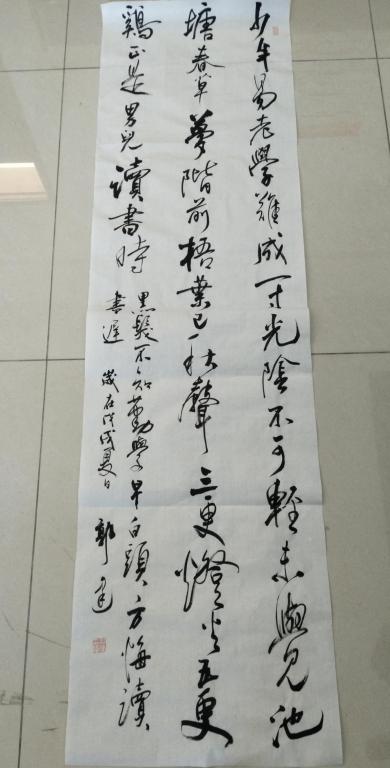 少年易老學難成一寸光陰不可輕未覺池
塘春草夢階前梧葉已秋聲三更燈火五更
鷄正是男兒讀書時
黑髮不知勤學早白頭方悔讀
書遲 歲在戊戌夏日 郭